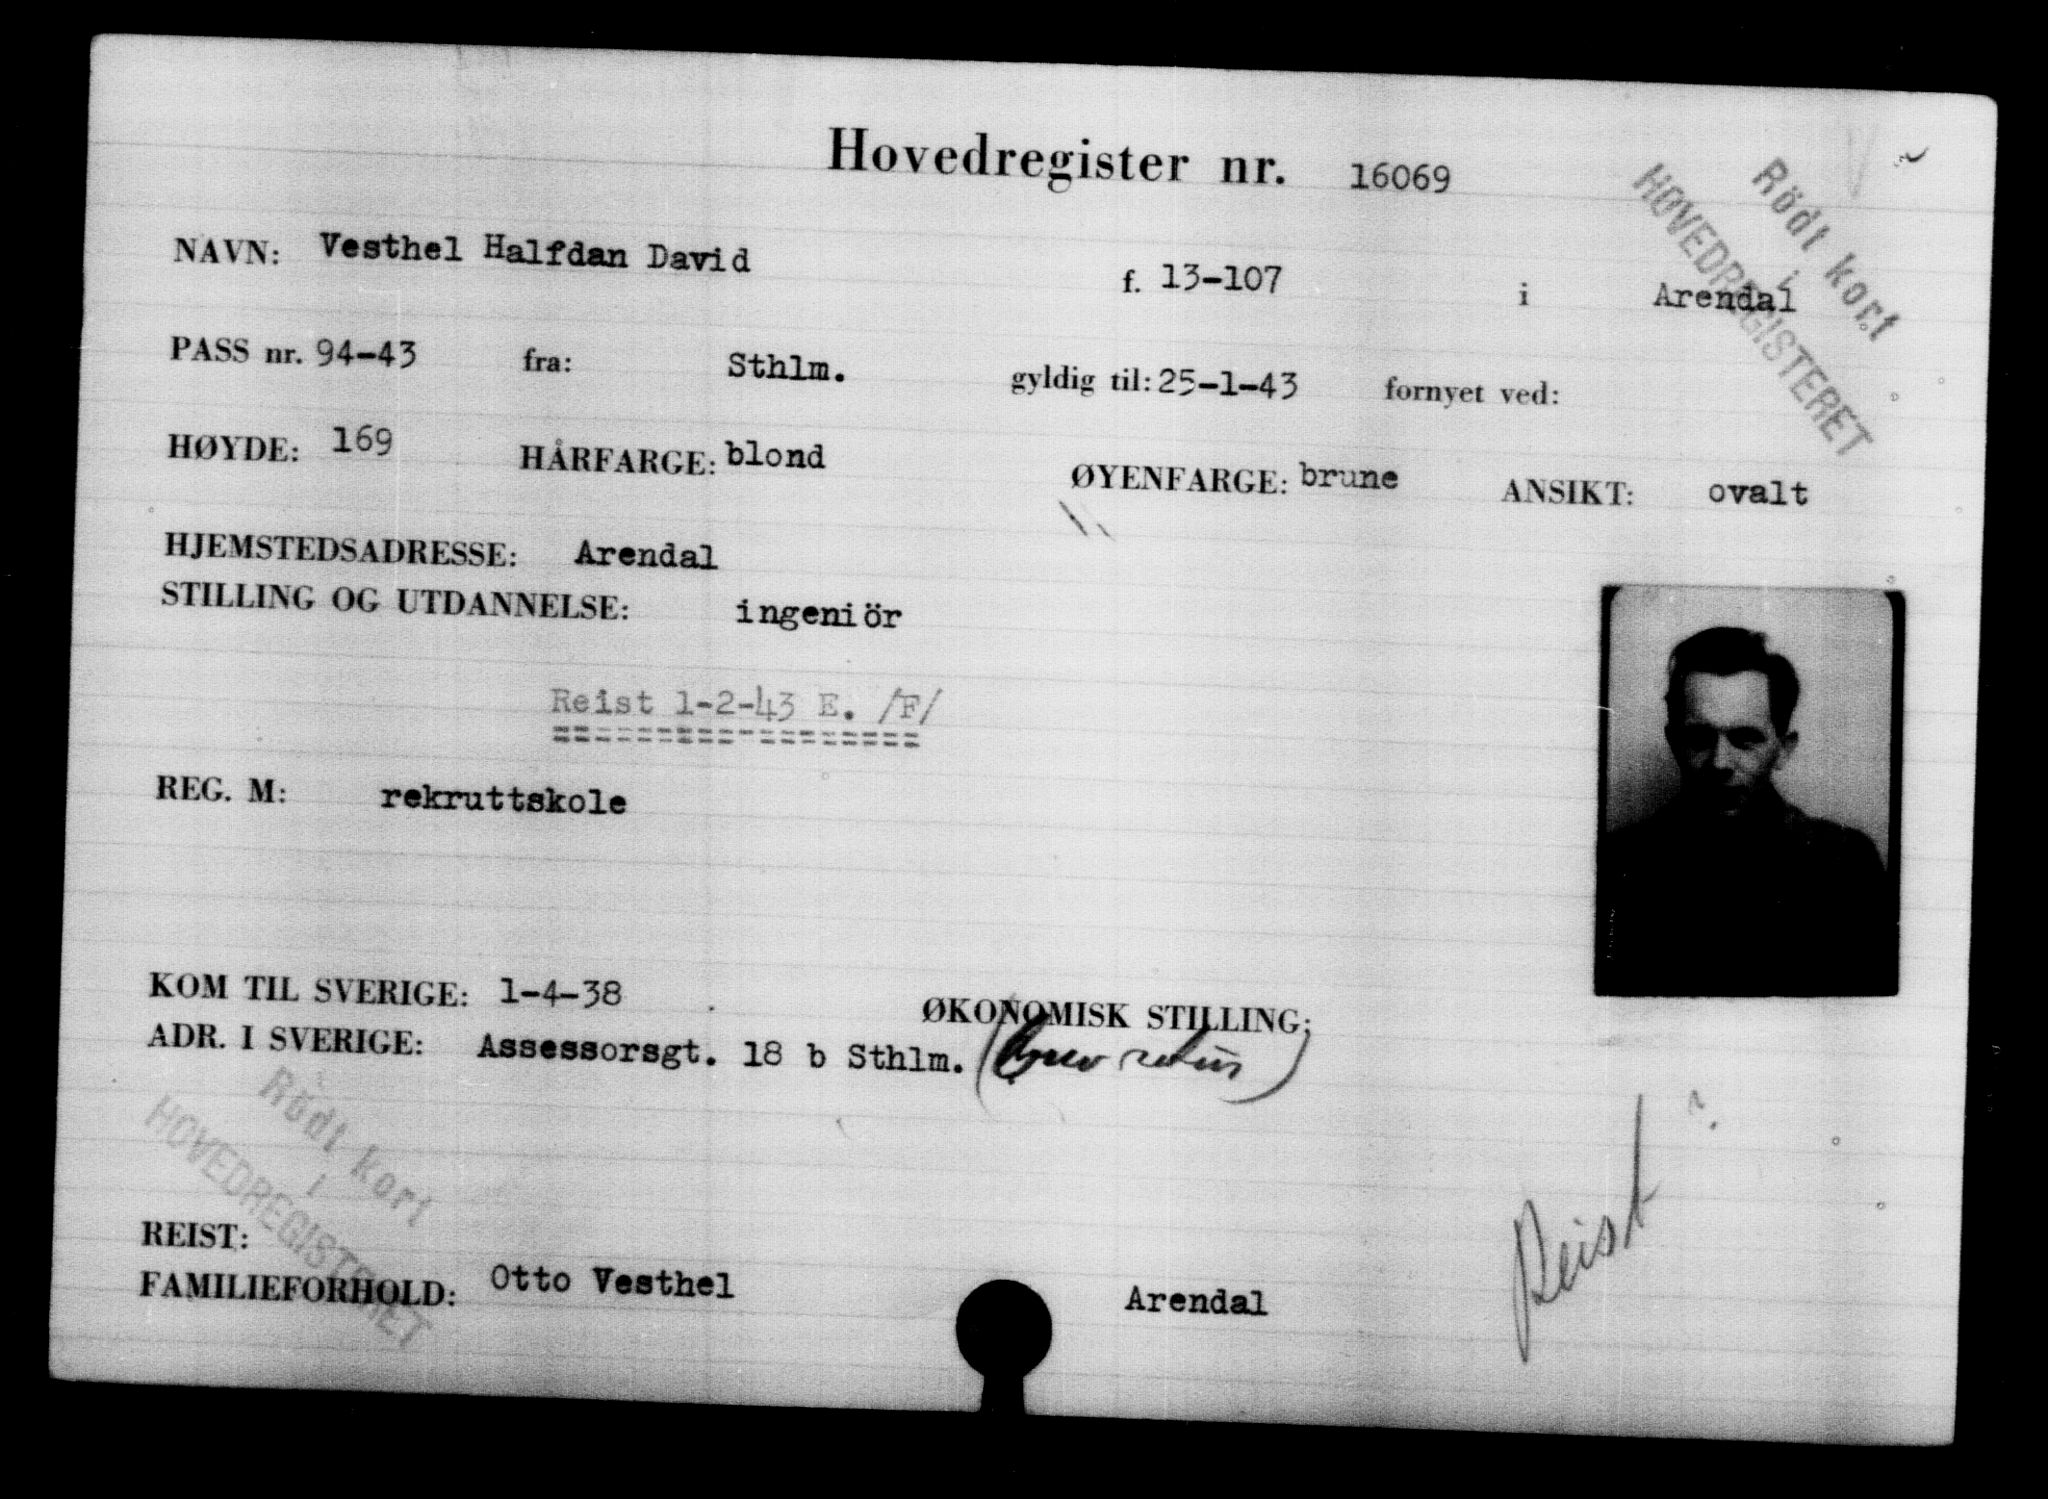 Hovedregister nr. 16069
Rödt kort
i
HOVEDREGISTERET
NAVN: Vesthel Halfdan David f. 13-107 i Arendal
PASS nr. 94-43 fra: Sthlm. gyldig til: 25-1-43 fornyet ved:
HØYDE: 169 HÅRFARGE: blond ØYENFARGE: brune ANSIKT: ovalt
HJEMSTEDSADRESSE: Arendal
STILLING OG UTDANNELSE: ingeniör
Reist 1-2-43 E. /F/
REG. M: rekruttskole
KOM TIL SVERIGE: 1-4-38 ØKONOMISK STILLING:
ADR. I SVERIGE: Assessorsgt. 18 b Sthlm. (brev retur)
Rödt kort
i
HOVEDREGISTERET
Reist?
REIST:
FAMILIEFORHOLD: Otto Vesthel Arendal